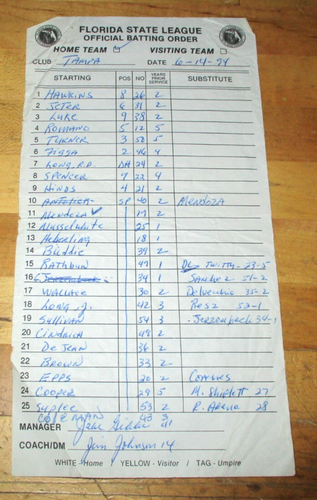 FLORIDA STATE LEAGUE
OFFICIAL BATTING ORDER
HOME TEAM VISITING TEAM
CLUB TAMPA DATE 6-14-94
STARTING POS NO YEARS PRIOR SERVICE SUBSTITUTE
1 HAWKINS 8 26 2
2 JETER 6 31 2
3 LUKE 9 38 2
4 ROMANO 5 12 5
5 TURNER 3 52 5
6 2 46 4
7 LONG, R.D. DH 24 2
8 SPENCER 7 22 4
9 HINDS 4 21 2
10 SP 40 2 Mendoza
11 Mendoza 17 2
12 Musselwhite 25 1
13 18 1
14 Buddie 39 2
15 Rathbun 47 1
16 34 1
17 WALLACE 30 2 Delvecchio 35-2
18 LONG, J. 42 3
19 Sullivan 54 3 34-1
20 CINDRICH 49 2
21 DE JEAN 36 2
22 BROWN 33 2
23 EPPS 20 2 COACHES
24 COOPER 29 5 M. 27
25 Suplee 53 2 28
43 3
MANAGER Jake Gibbs 41
COACH/DM Jim Johnson 14
WHITE - Home / YELLOW - Visitor / TAG - Umpire